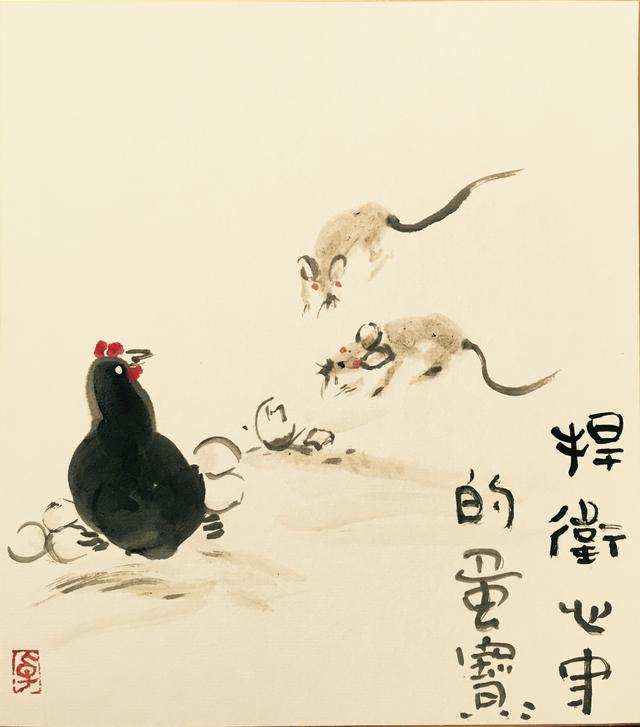 捍衛心中
的蛋寶